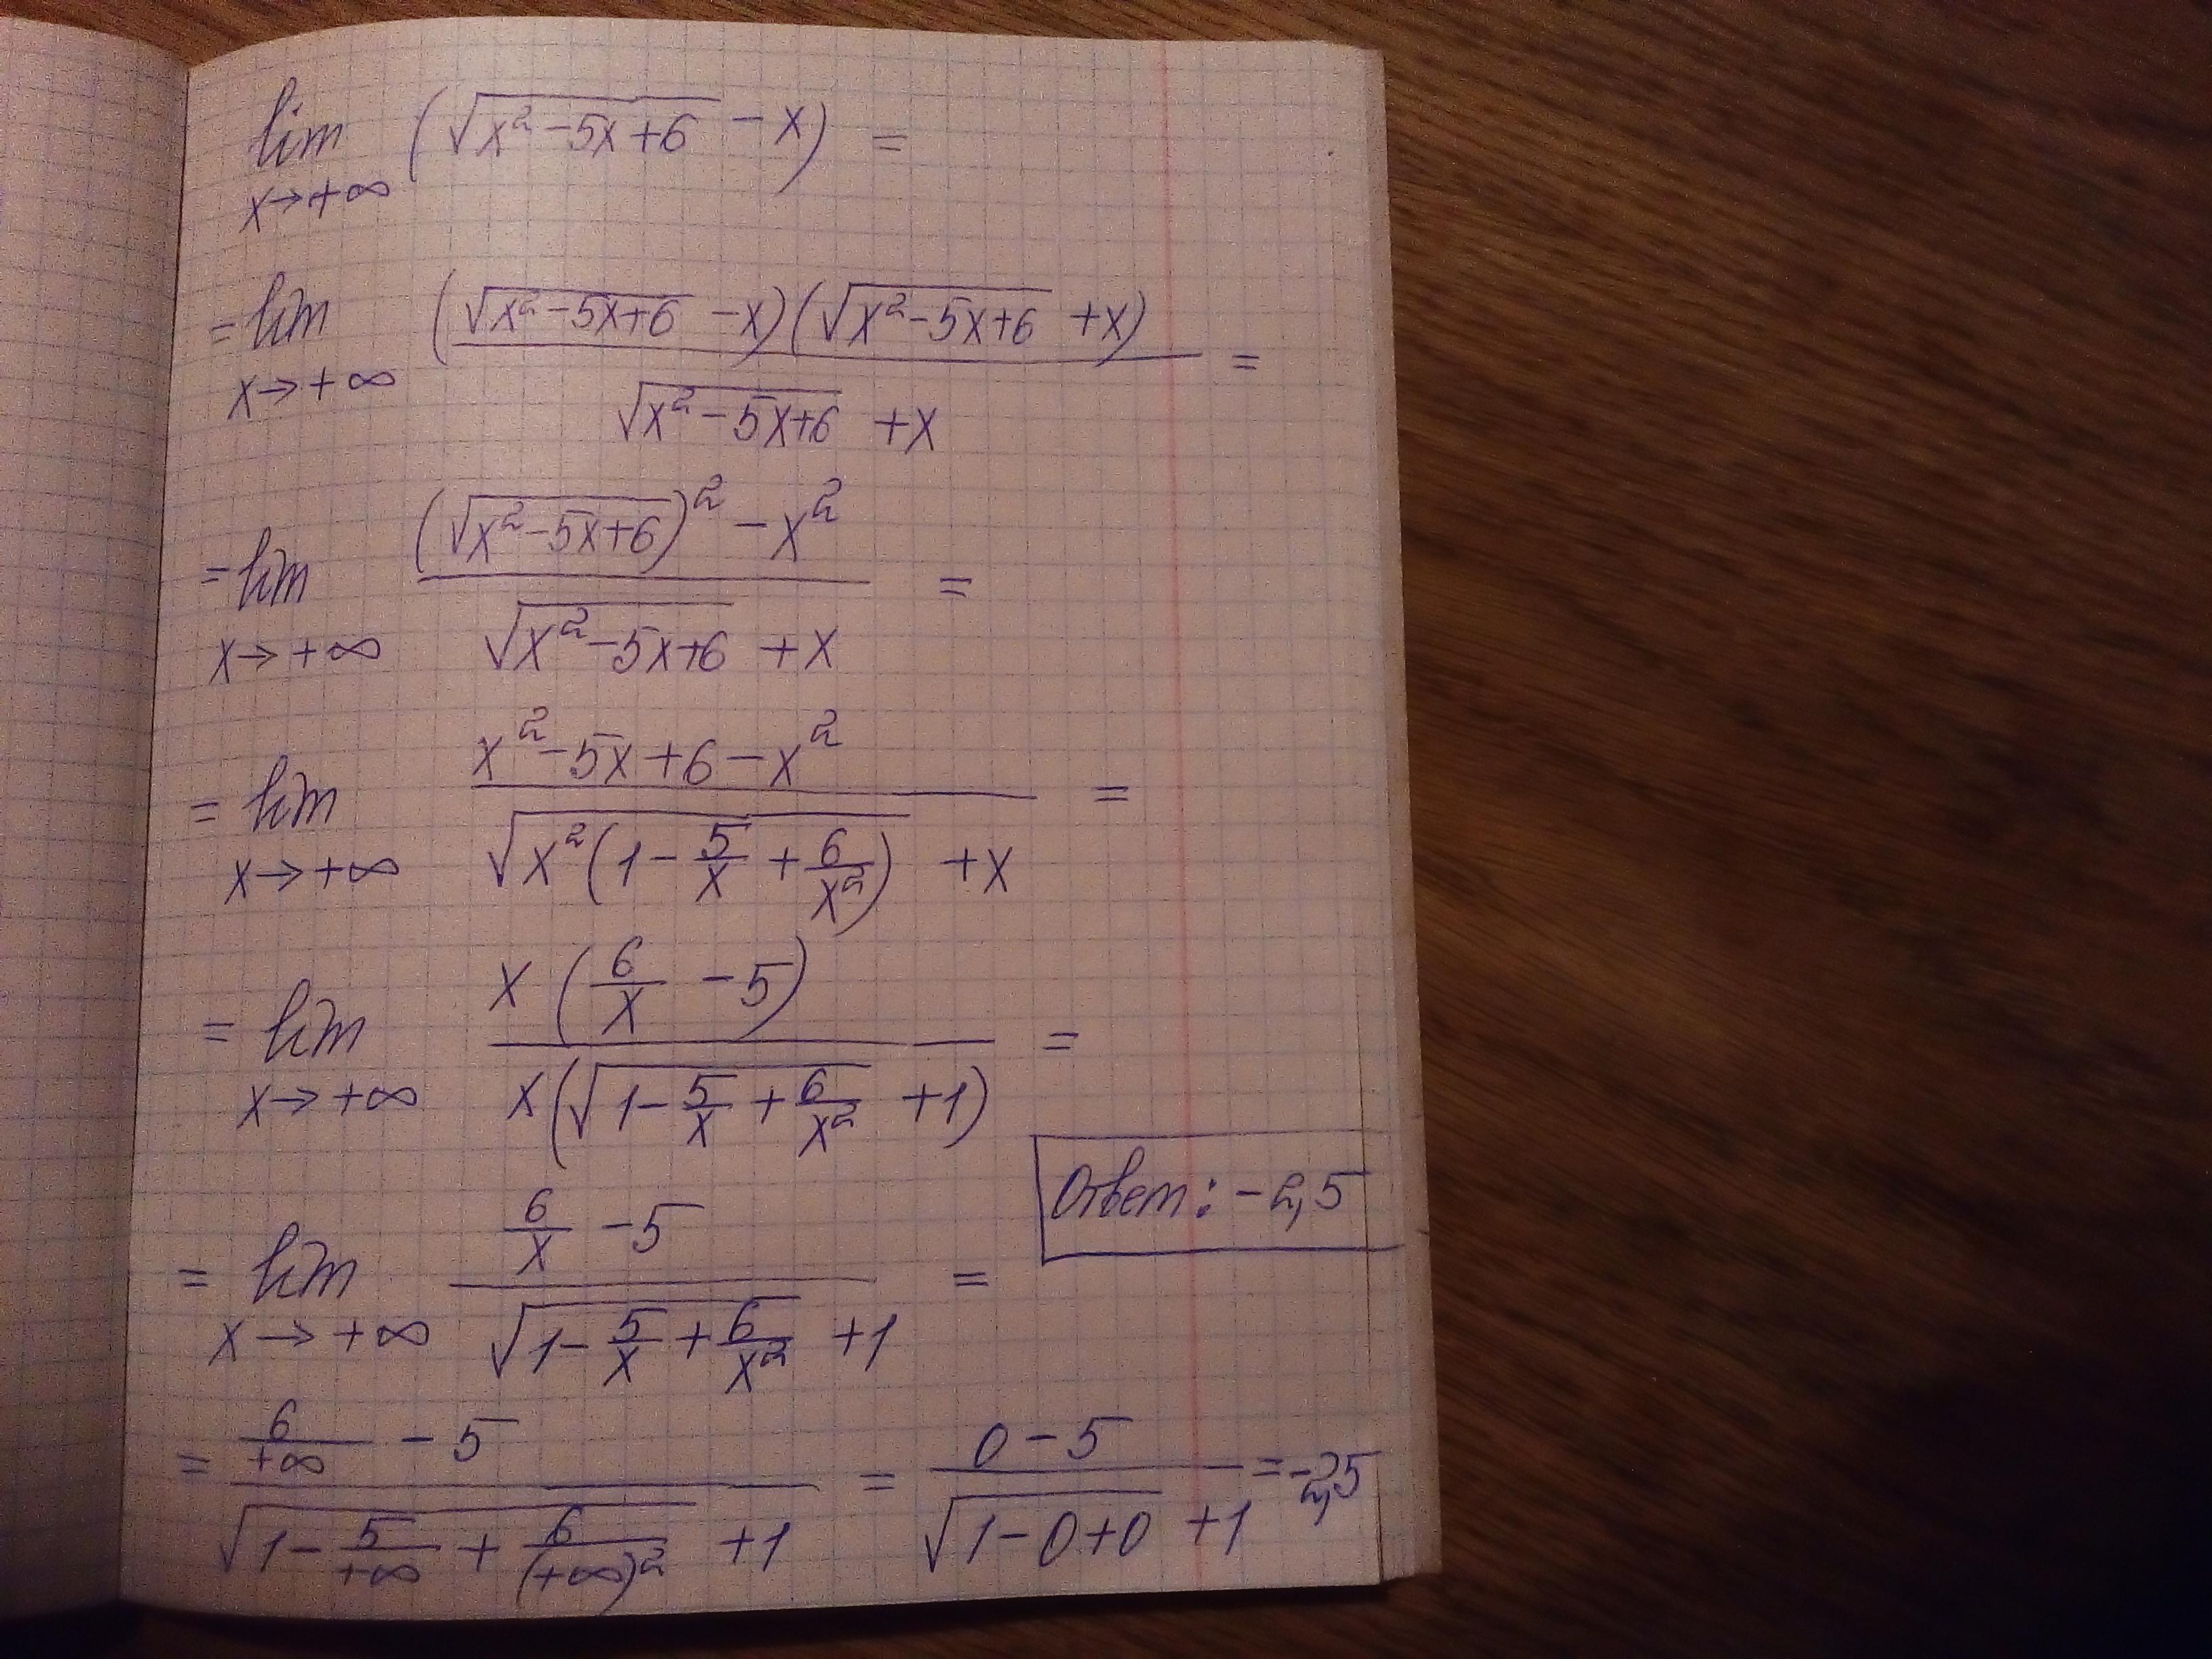 lim x→+∞ (√(x²-5x+6) - x) =
= lim x→+∞ ((√(x²-5x+6) - x)(√(x²-5x+6) + x)) / (√(x²-5x+6) + x) =
= lim x→+∞ ((√(x²-5x+6))² - x²) / (√(x²-5x+6) + x) =
= lim x→+∞ (x²-5x+6-x²) / (√(x²(1 - 5/x + 6/x²)) + x) =
= lim x→+∞ (x(6/x - 5)) / (x(√(1 - 5/x + 6/x²) + 1)) =
Ответ: -2,5
= lim x→+∞ (6/x - 5) / (√(1 - 5/x + 6/x²) + 1) =
= (6/(+∞) - 5) / (√(1 - 5/(+∞) + 6/(+∞)²) + 1) = (0-5) / (√(1-0+0) + 1) = -2,5